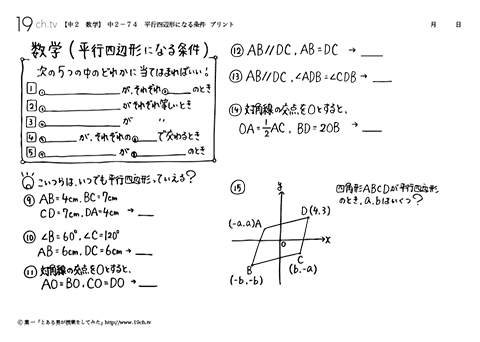 19ch.tv 【中2 数学】 中2-74 平行四辺形になる条件 プリント 月 日
数学(平行四辺形になる条件)
次の5つの中のどれかに当てはまればいい!
1 ① が、それぞれ のとき
2 がそれぞれ等しいとき
3 が 〃
4 が、それぞれの で交わるとき
5 が のとき
こいつらは、いつでも平行四辺形っていえる?
⑨ AB=4cm, BC=7cm
CD=7cm, DA=4cm →
⑩ ∠B=60°, ∠C=120°
AB=6cm, DC=6cm →
⑪ 対角線の交点をOとすると、
AO=BO, CO=DO →
⑫ AB//DC, AB=DC →
⑬ AB//DC, ∠ADB=∠CDB →
⑭ 対角線の交点をOとすると、
OA=1/2AC, BD=2OB →
⑮ 四角形ABCDが平行四辺形
のとき、a, bはいくつ?
y
D(4,3)
(-a,a)A
O
x
B
(-b,-b)
C
(b,-a)
© 葉一「とある男が授業をしてみた」http://www.19ch.tv